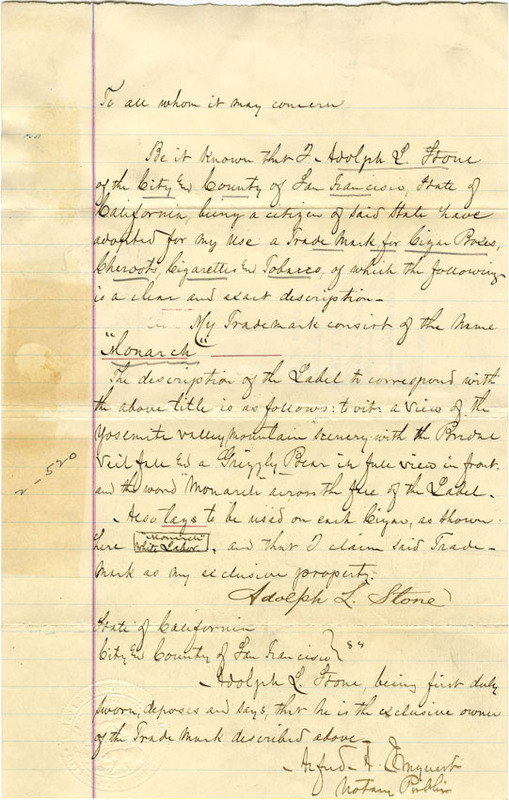 To all whom it may concern
Be it Known that I Adolph L. Stone
of the City & County of San Francisco, State of
California, being a citizen of said State have
adopted for my use a Trade Mark for Cigar Boxes,
Cheroots, Cigarettes & Tobacco, of which the following
is a clear and exact description.
My Trademark consist of the Name
"Monarch"
The description of the Label to correspond with
the above title is as follows: to vit: a view of the
Yosemite valley, mountain scenery with the Bridal
Veil fall & a Grizzly Bear in full view in front.
and the word "Monarch" across the face of the Label.
Also tags to be used on each Cigar, as shown
"Monarch"
here White Labor, and that I claim said Trade-
Mark as my exclusive property.
Adolph L. Stone
2-520
State of California
City & County of San Francisco } ss
Adolph L. Stone, being first duly
sworn, deposes and says, that he is the exclusive owner
of the Trade Mark described above.
Alfred A.
Notary Public